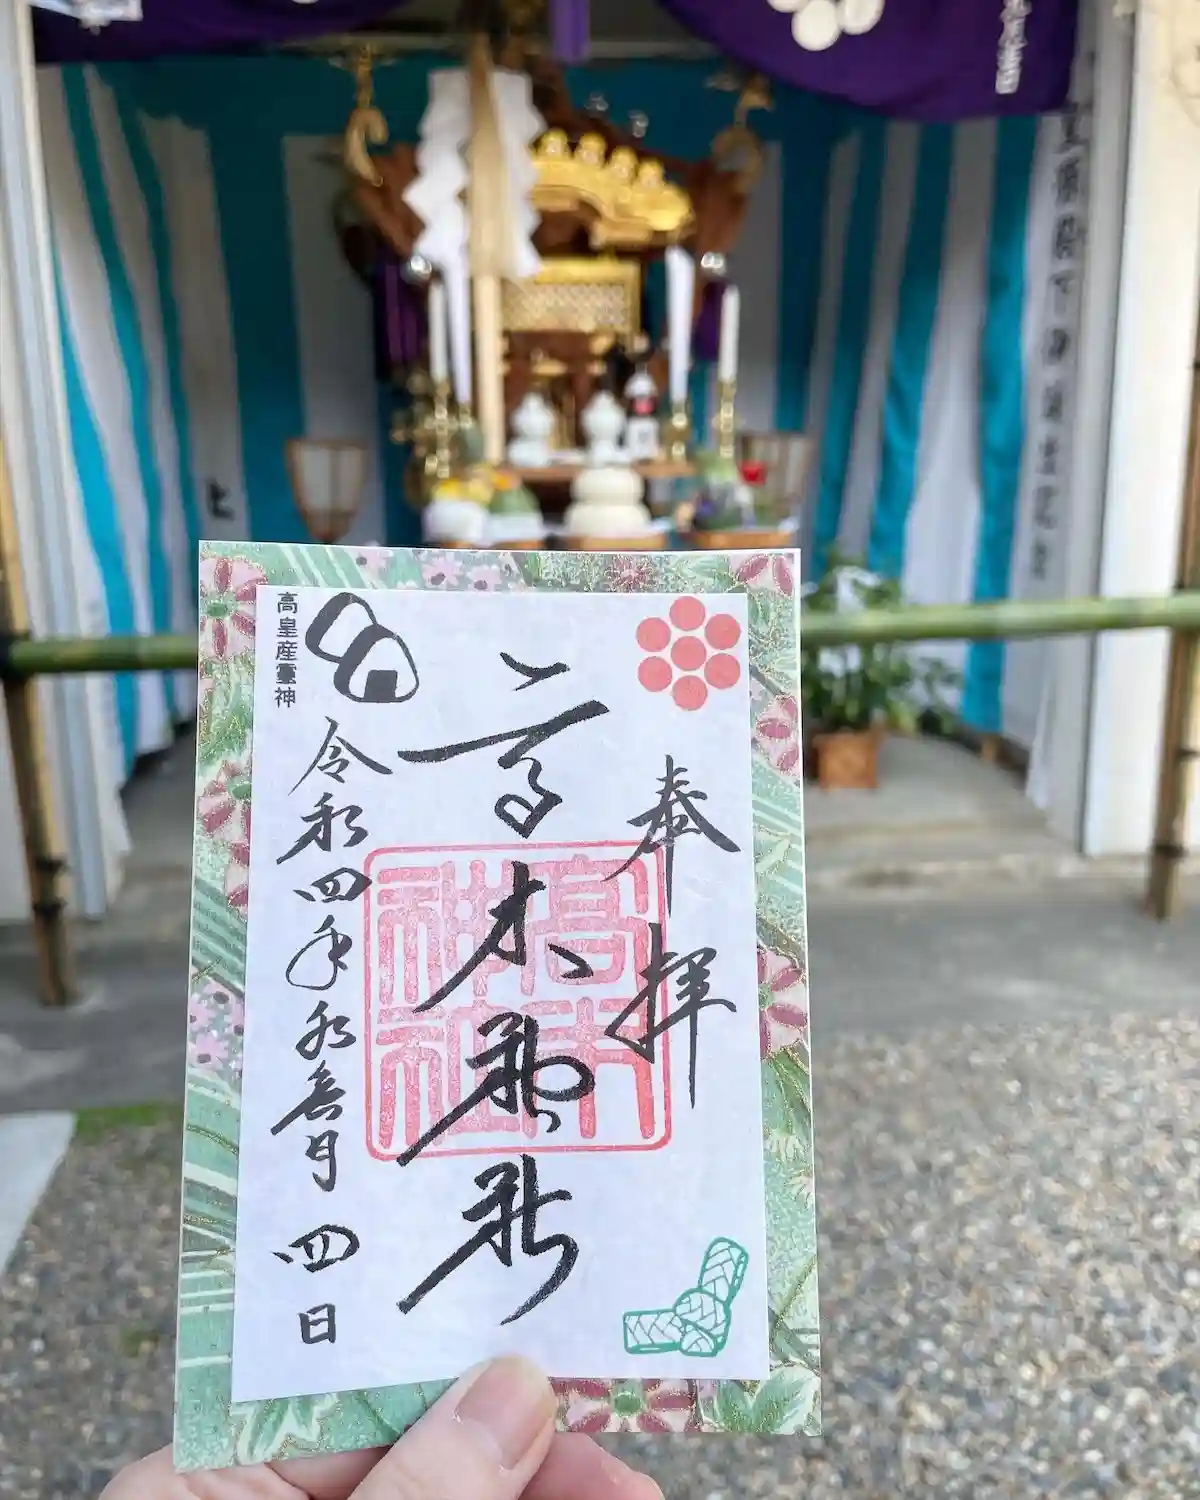 奉拝
高木神社
高木
神社
高皇産靈神
令和四年水無月四日